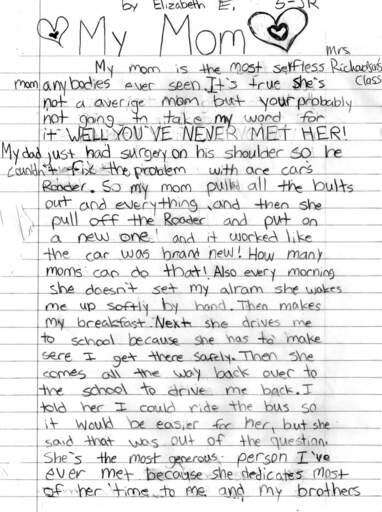 by Elizabeth E. 5-JR
My Mom
Mrs.
My mom is the most selfless Richardson's
mom anybodies ever seen. It's true she's class
not a averige mom but your probably
not going to take my word for
it WELL YOU'VE NEVER MET HER!
My dad just had surgery on his shoulder so he
couldn't fix the problem with are car's
Roader. So my mom pulld all the bults
out and everything and then she
pull off the Roader and put on
a new one! and it worked like
the car was brand new! How many
moms can do that! Also every morning
she doesn't set my alram she wakes
me up softly by hand. Then makes
my breakfast. Next she drives me
to school because she has to make
sere I get there safely. Then she
comes all the way back over to
the school to drive me back. I
told her I could ride the bus so
it would be easier for her, but she
said that was out of the question.
She's the most generous person I've
ever met because she dedicates most
of her time to me and my brothers